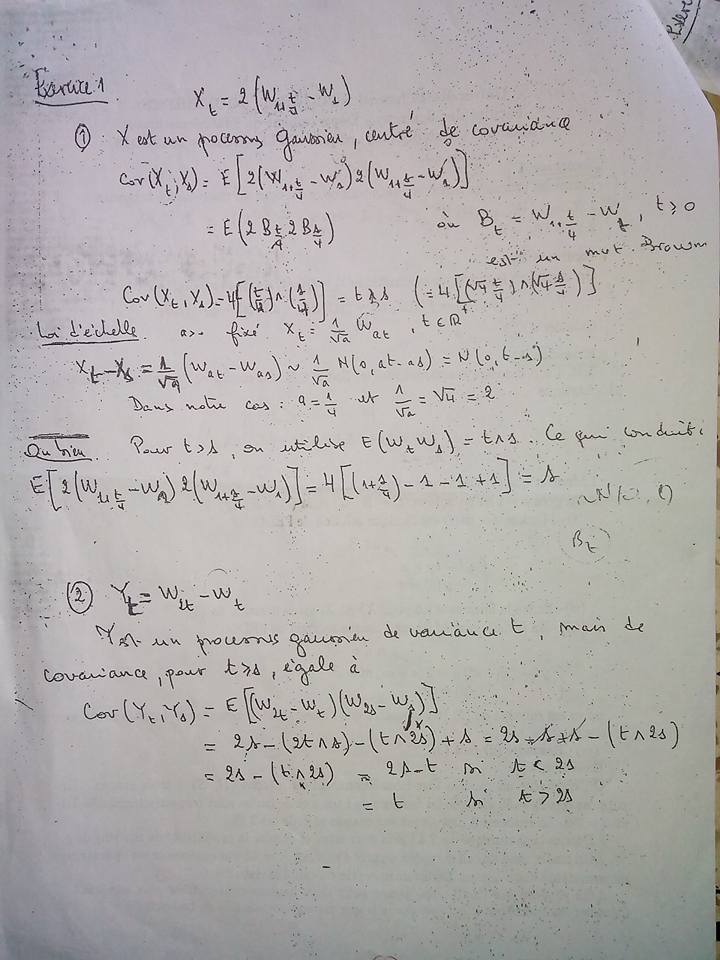 Exercice 1
X_t = 2(W_{1+t/4} - W_1)
① X est un processus gaussien, centré de covariance
Cov(X_t, X_s) = E[2(W_{1+t/4} - W_1) 2(W_{1+s/4} - W_1)]
= E(2 B_{t/4} 2 B_{s/4}) où B_t = W_{1+t/4} - W_1, t ≥ 0
est un mvt. Brown
Cov(X_t, X_s) = 4[(t/4) ∧ (s/4)] = t ∧ s (= 4[(√4 t/4) ∧ (√4 s/4)]
Loi d'échelle. a> fixé X_t = 1/√a W_{at}, t ∈ R^+
X_t - X_s = 1/√a (W_{at} - W_{as}) ~ 1/√a N(0, at - as) = N(0, t - s)
Dans notre cas : a = 1/4 et 1/√a = √4 = 2
Ou bien Pour t > s, on utilise E(W_t W_s) = t ∧ s. Ce qui conduit :
E[2(W_{1+t/4} - W_1) 2(W_{1+s/4} - W_1)] = 4[(1 + s/4) - 1 - 1 + 1] = s
B_t
② Y_t = W_{2t} - W_t
Y est un processus gaussien de variance t, mais de
covariance, pour t ≥ s, égale à
Cov(Y_t, Y_s) = E[(W_{2t} - W_t)(W_{2s} - W_s)]
= 2s - (2t ∧ s) - (t ∧ 2s) + s = 2s - s + s - (t ∧ 2s)
= 2s - (t ∧ 2s) = 2s - t si t < 2s
= t si t > 2s